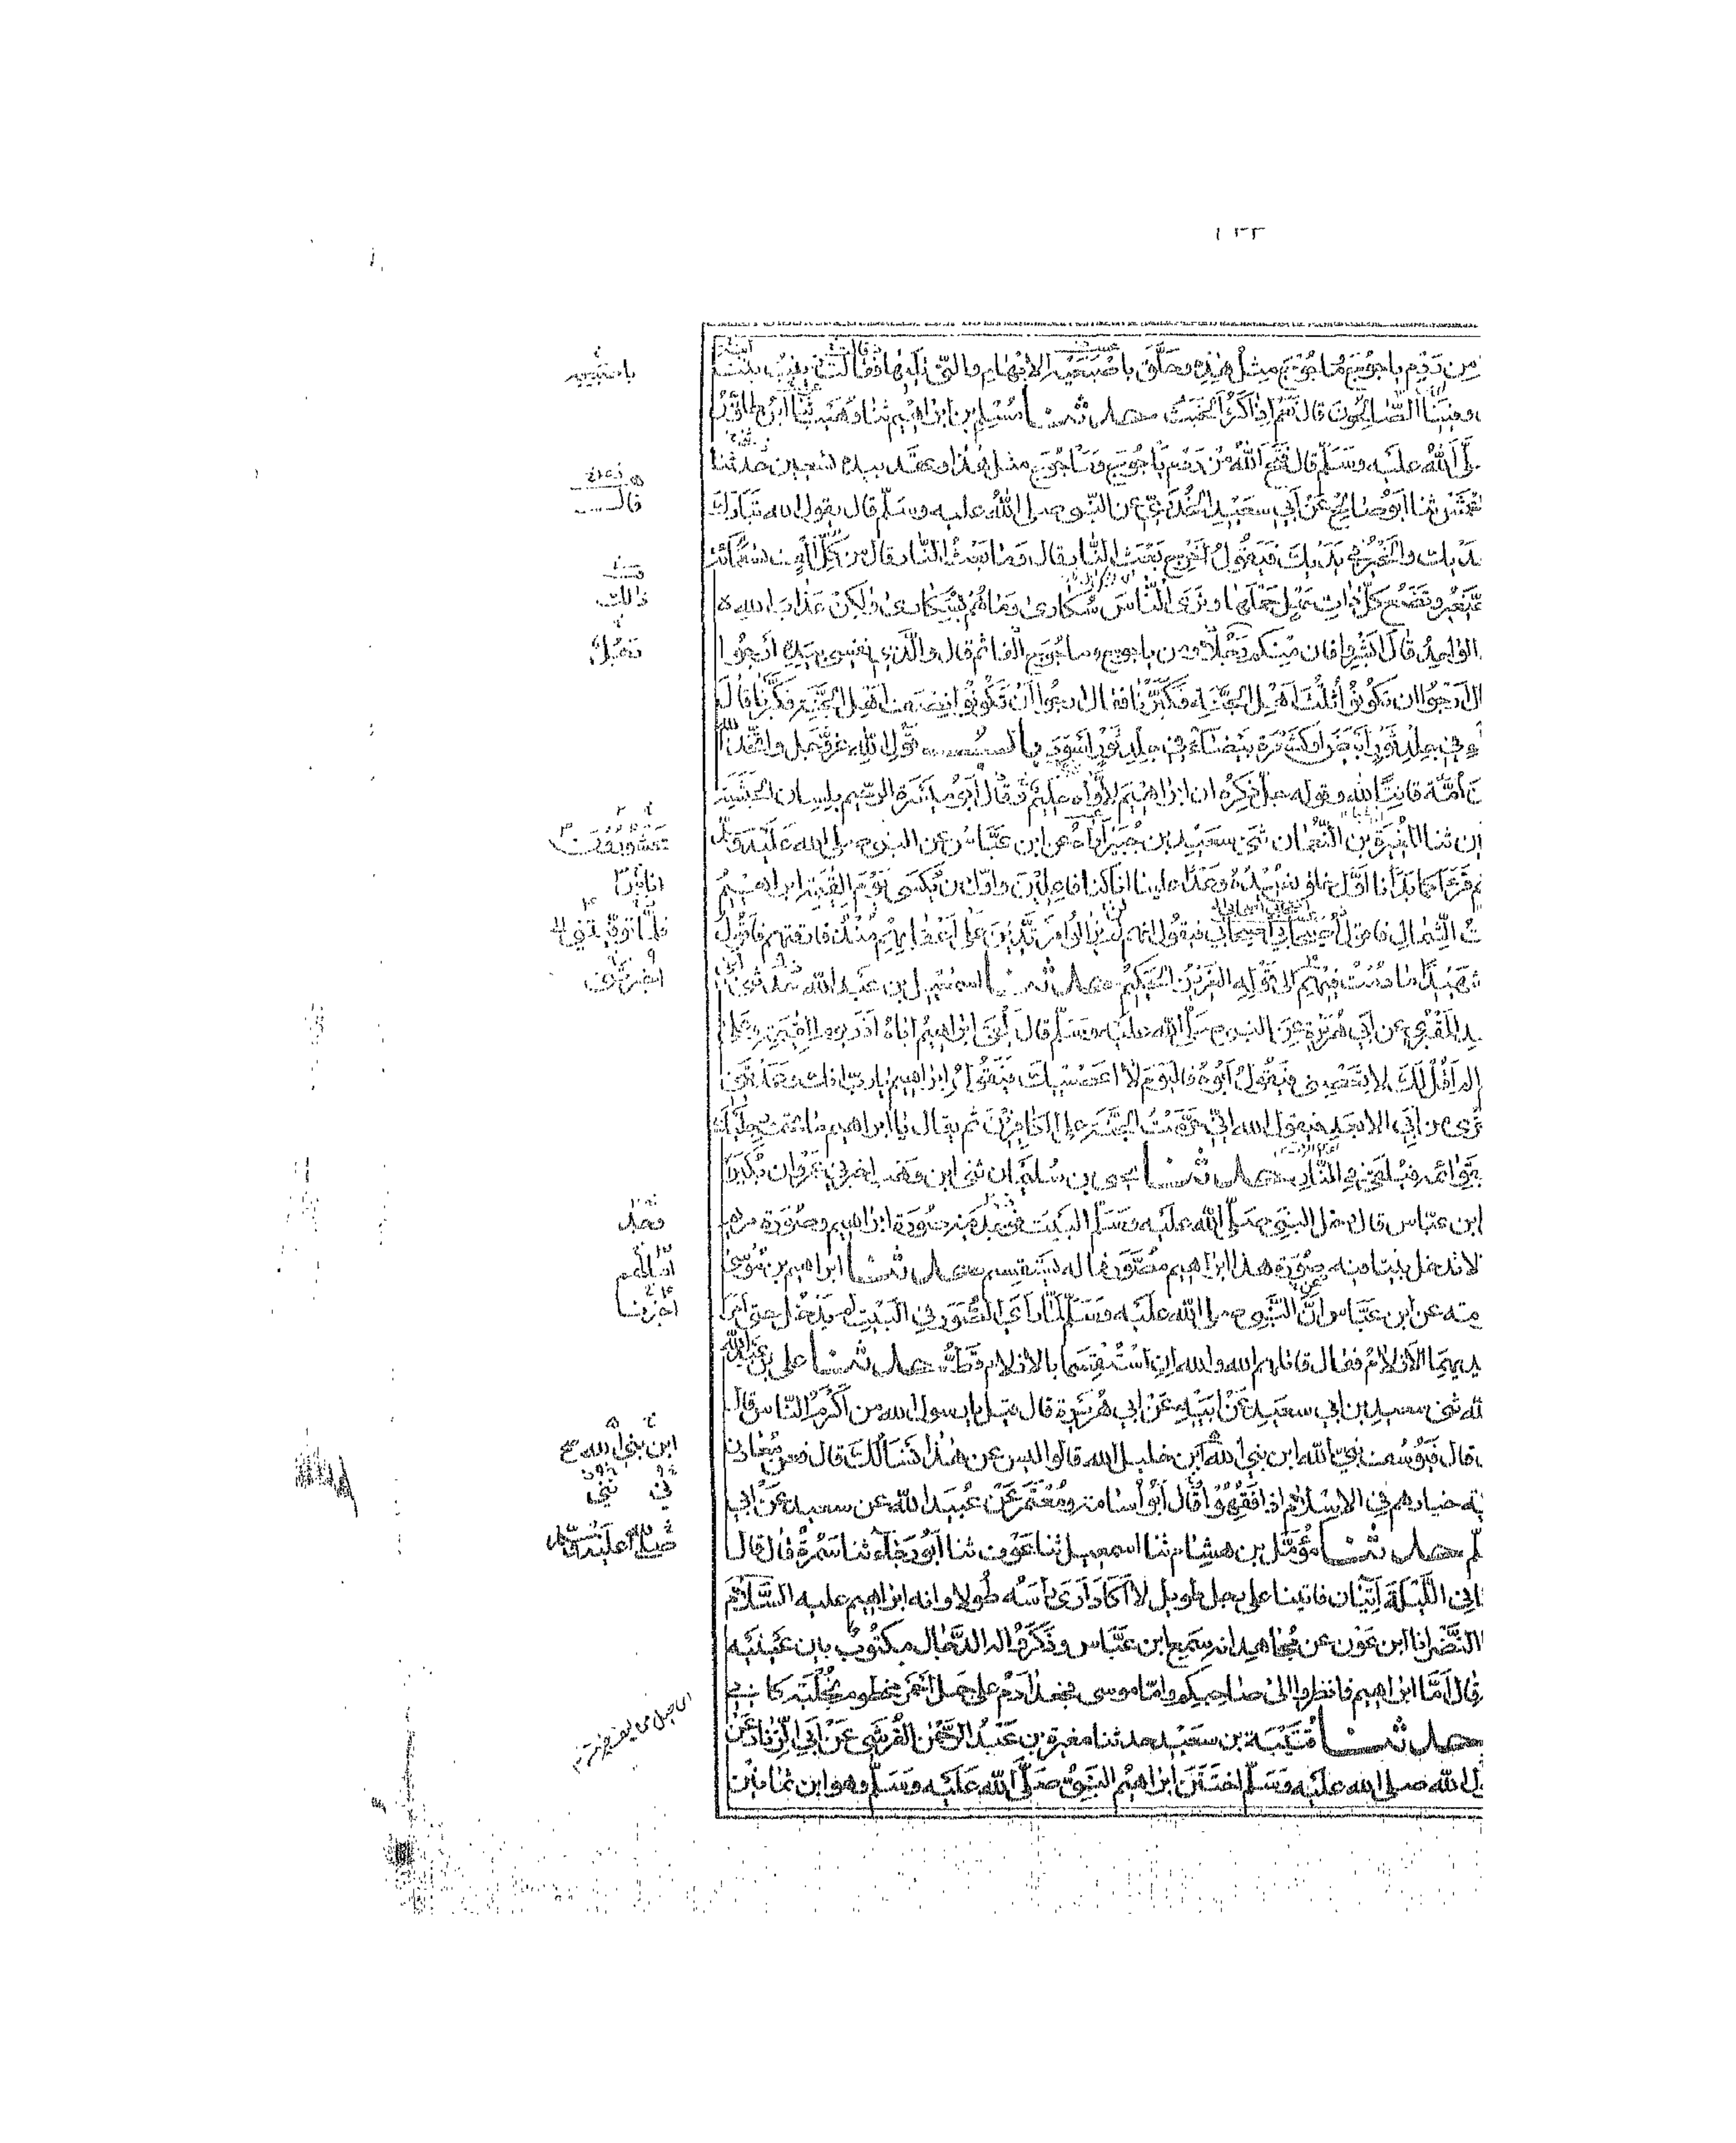 ١٣٢
من ردم ياجوج وماجوج مثل هذه وحلق باصبعيه الابهام والتي تليها فقالت زينب بنت
وفينا الصالحون قال نعم اذا كثر الخبث حدثنا مسلم بن ابراهيم ثنا وهيب ثنا ابن طاؤس
لى الله عليه وسلم قال فتح الله من ردم ياجوج وماجوج مثل هذا وعقد بيده تسعين حدثنا
ثنا ابو صالح عن ابي سعيد الخدري عن النبي صلى الله عليه وسلم قال يقول الله تبارك
يديك والخير في يديك فيقول اخرج بعث النار قال وما بعث النار قال من كل الف تسعمائة
وتضع كل ذات حمل حملها وترى الناس سكارى وما هم بسكارى ولكن عذاب الله
الواحد قال ابشروا فان منكم رجلا ومن ياجوج وماجوج الفا ثم قال والذي نفسي بيده ارجوا
ال ارجوا ان تكونوا ثلث اهل الجنة فكبرنا فقال ارجوا ان تكونوا نصف اهل الجنة فكبرنا قال
في جلد ثور ابيض او كشعرة بيضاء في جلد ثور اسود باب قول الله عز وجل واتخذ الله
امة قانتا لله وقوله جل ذكره ان ابراهيم لاواه حليم وقال ابو ميسرة الرحيم بلسان الحبشية
ثنا المغيرة بن النعمان ثنى سعيد بن جبير اراه عن ابن عباس عن النبي صلى الله عليه وسلم
ثم قرأ كما بدأنا اول خلق نعيده وعدا علينا انا كنا فاعلين واول من يكسى يوم القيمة ابراهيم
الشمال فاقول اصحابي اصحابي فيقول انهم لن يزالوا مرتدين على اعقابهم منذ فارقتهم فاقول
شهيدا ما دمت فيهم الى قوله العزيز الحكيم حدثنا اسمعيل بن عبد الله ثنى
المقبري عن ابي هريرة عن النبي صلى الله عليه وسلم قال يلقى ابراهيم اباه ازر يوم القيمة وعلى
الم اقل لك لا تعصني فيقول ابوه فاليوم لا اعصيك فيقول ابراهيم يارب انك وعدتني
خزي من ابي الابعد فيقول الله اني حرمت الجنة على الكافرين ثم يقال يا ابراهيم ما تحت رجليك
بقوائمه فيلقى في النار حدثنا يحيى بن سليمان ثنى ابن وهب اخبرني عمرو ان بكيرا
ابن عباس قال دخل النبي صلى الله عليه وسلم البيت فوجد فيه صورة ابراهيم وصورة مريم
لا تدخل بيتا فيه صورة هذا ابراهيم مصور فما له يستقسم حدثنا ابراهيم بن موسى
عن ابن عباس ان النبي صلى الله عليه وسلم لما راى الصور في البيت لم يدخل حتى امر
يديهما الازلام فقال قاتلهم الله والله ان استقسما بالازلام قط حدثنا علي بن عبد الله
ثنى سعيد بن ابي سعيد عن ابيه عن ابي هريرة قال قيل يا رسول الله من اكرم الناس قال
قال فيوسف نبي الله ابن نبي الله ابن خليل الله قالوا ليس عن هذا نسألك قال فعن معادن
خيارهم في الاسلام اذا فقهوا قال ابو اسامة ومعتمر عن عبيد الله عن سعيد عن ابي
حدثنا مؤمل بن هشام ثنا اسمعيل ثنا عوف ثنا ابو رجاء ثنا سمرة قال قال
اني الليلة اتيان فاتينا على رجل طويل لا اكاد ارى راسه طولا وانه ابراهيم عليه السلام
النضر انا ابن عون عن مجاهد انه سمع ابن عباس وذكروا له الدجال مكتوب بين عينيه
قال اما ابراهيم فانظروا الى صاحبكم واما موسى فجعد ادم على جمل احمر مخطوم بخلبة كاني
حدثنا قتيبة بن سعيد حدثنا مغيرة بن عبد الرحمن القرشي عن ابي الزناد عن
ل الله صلى الله عليه وسلم اختتن ابراهيم النبي صلى الله عليه وسلم وهو ابن ثمانين
باصبعيه
قال
ذلك
ابن نبي الله
صلى الله عليه وسلم